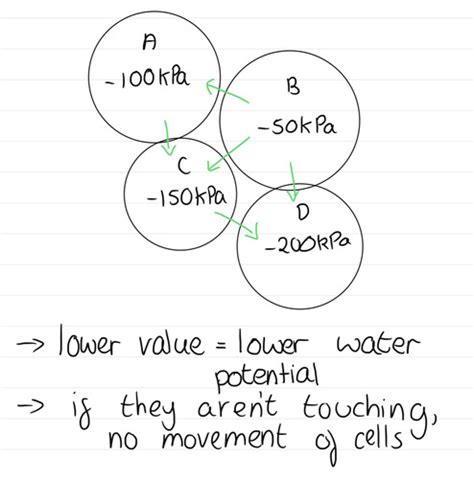 A
-100kPa
B
-50kPa
C
-150kPa
D
-200kPa
→ lower value = lower water
potential
→ if they aren't touching,
no movement of cells